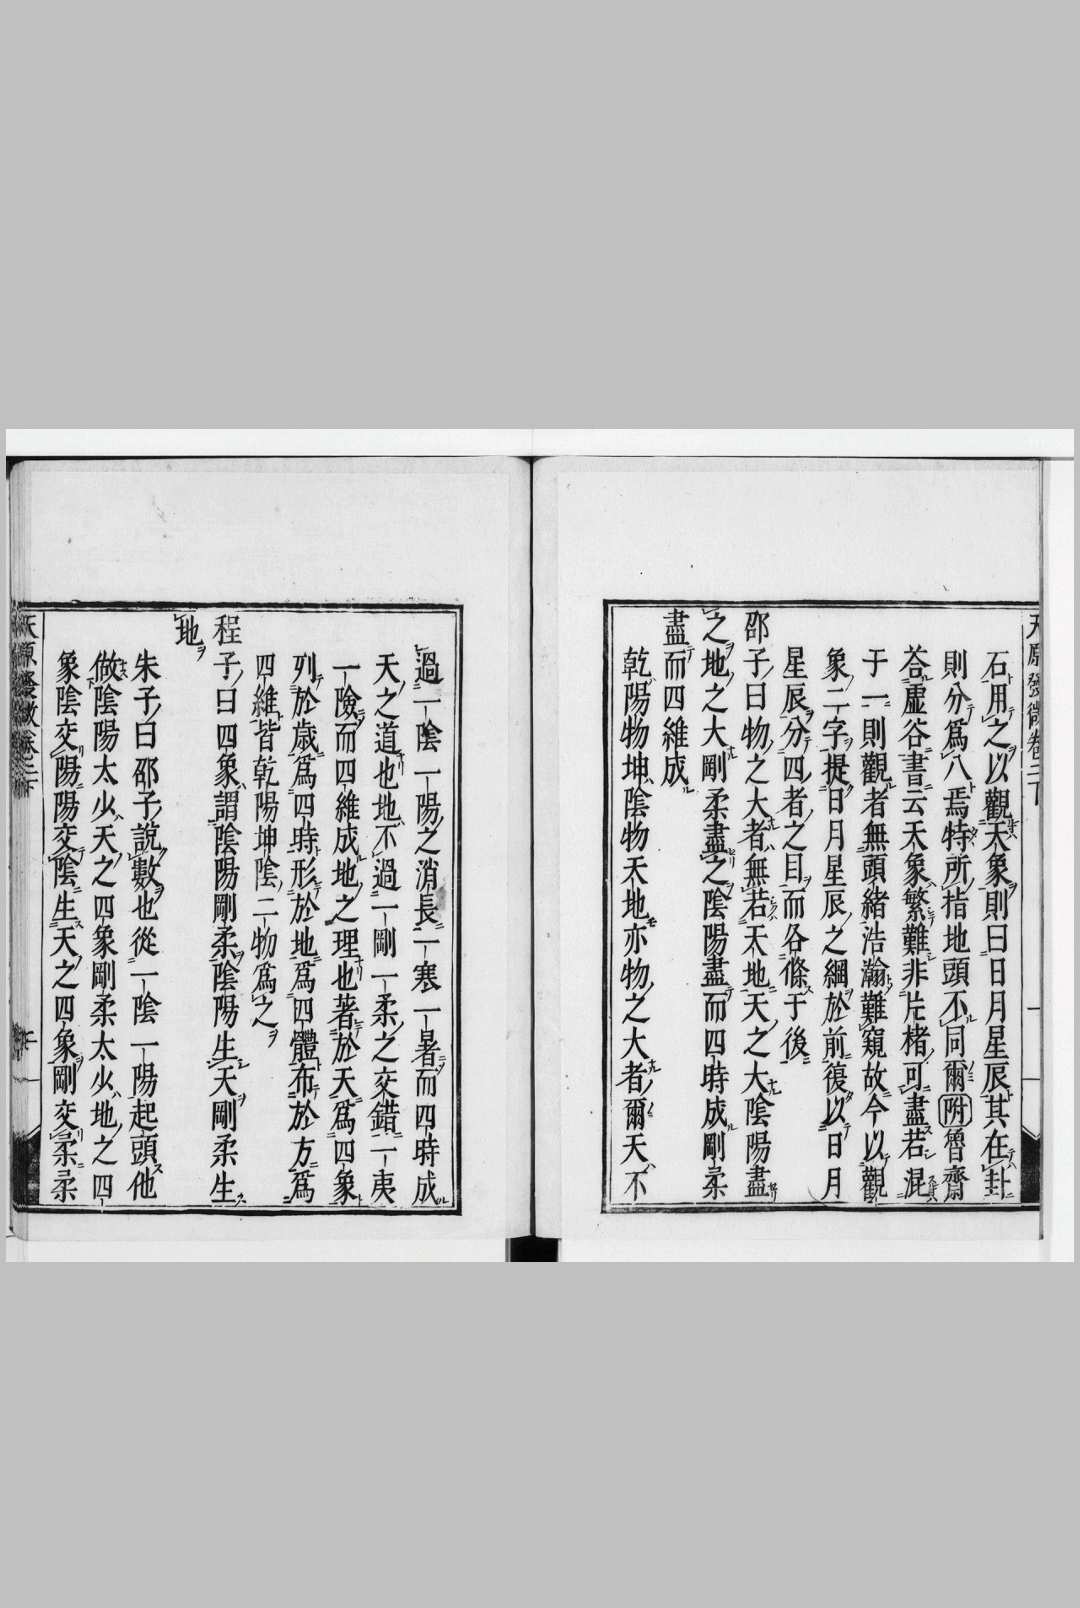 天原發微卷二下
石用之以觀天象則曰日月星辰其在卦
則分爲八焉特所指地頭不同爾附魯齋
荅虛谷書云天象繁難非片楮可盡若混
于一則觀者無頭緒浩瀚難窺故今以觀
象二字提日月星辰之綱於前復以日月
星辰分四者之目而各條于後
邵子曰物之大者無若天地天之大陰陽盡
之地之大剛柔盡之陰陽盡而四時成剛柔
盡而四維成
乾陽物坤陰物天地亦物之大者爾天不
過一陰一陽之消長一寒一暑而四時成
天之道也地不過一剛一柔之交錯一夷
一險而四維成地之理也著於天爲四象
列於歲爲四時形於地爲四體布於方爲
四維皆乾陽坤陰二物爲之
程子曰四象謂陰陽剛柔陰陽生天剛柔生
地
朱子曰邵子說數也從一陰一陽起頭他
做陰陽太少天之四象剛柔太少地之四
象陰交陽陽交陰生天之四象剛交柔柔
天原發微卷二下